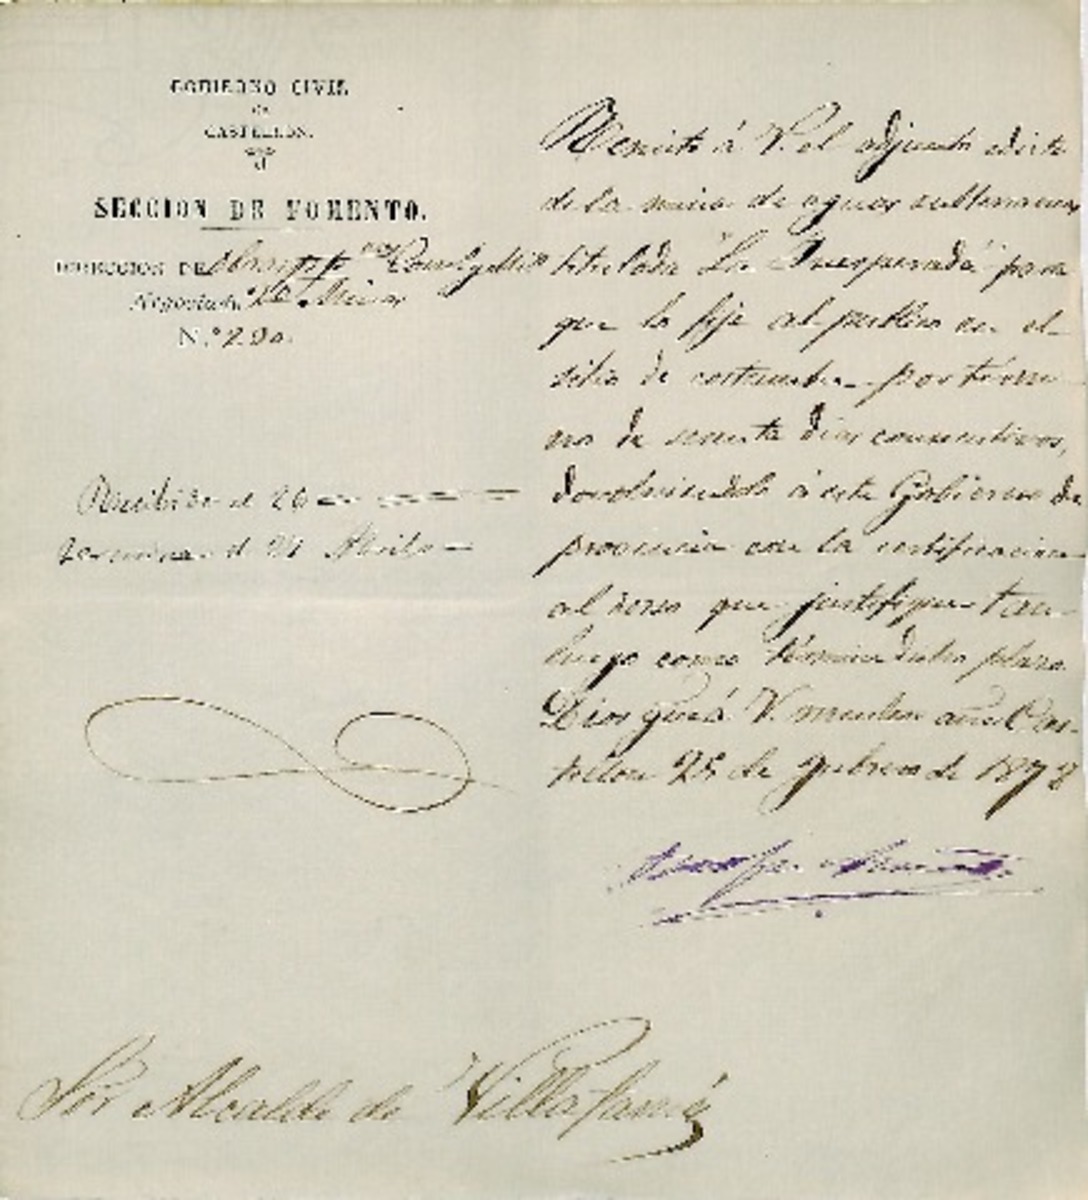 GOBIERNO CIVIL
DE
CASTELLON.
SECCION DE FOMENTO.
DIRECCION DE Obras pp.
Negociado 2º Minas
N.º 290.
Recibido el 26
termina el 27 Abril
Remito á V. el adjunto edicto
de la mina de aguas subterraneas
titulada "La Inesperada" para
que lo fije al publico en el
sitio de costumbre por térmi-
no de sesenta dias consecutivos,
devolviendolo á este Gobierno de
provincia con la certificacion
al dorso que justifique tan
luego como termine dicho plazo.
Dios gue á V. muchos años Cas-
tellon 25 de Febrero de 1878
Sor Alcalde de Villafamés